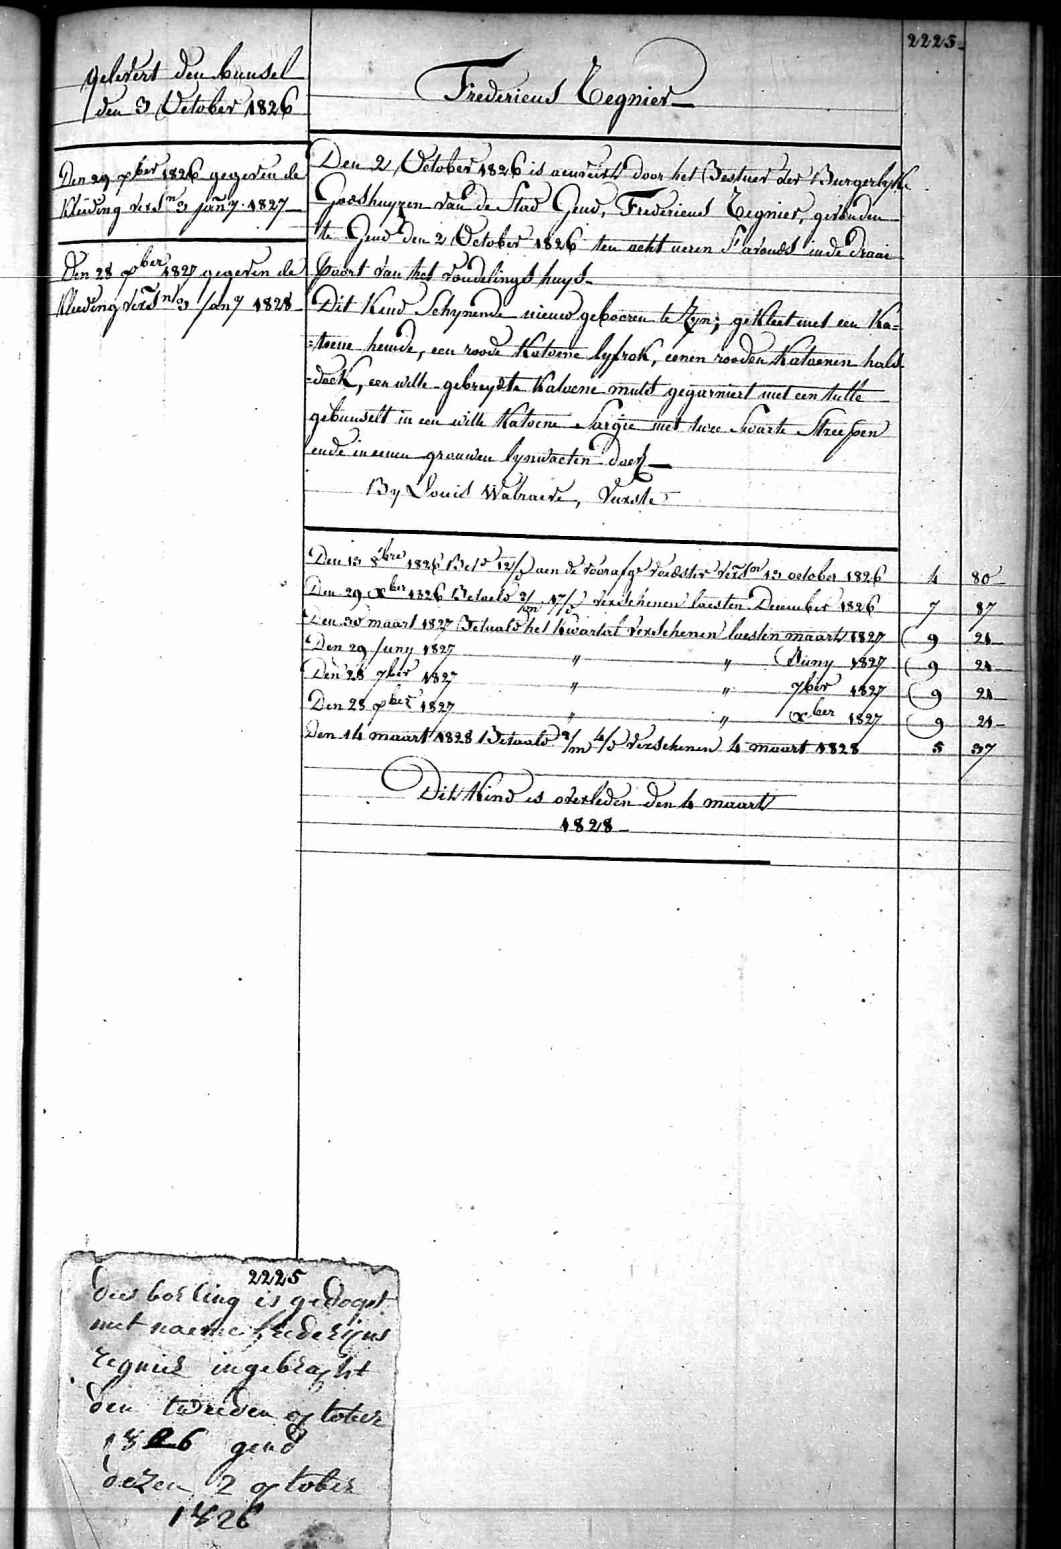 2225.
gelevert den bunsel
den 3 October 1826
Fredericus Regnier
Den 29 xber 1826 gegeven de
kleeding versn 3 jany. 1827
Den 28 xber 1827 gegeven de
kleeding versn 3 jany 1828
Den 2 October 1826 is aenveird door het Bestuer der Burgerlyke
Godshuyzen van de Stad Gend, Fredericus Regnier, gevonden
te Gend den 2 October 1826 ten acht ueren s'avonds in de draai
poort van het vondelings huys.
Dit Kind schynende nieuw geboren te zyn; gekleet met een ka=
=toene hemde, een roode katoene lyfrok, eenen rooden katoenen hals
=doek, een witte gebreyde katoene muts gegarniert met een tulle
gebunselt in een witte katoene sargie met twee swarte streepen
ende in eenen grauwen lynwaeten doek
By Louis Walraeve, Vurste
Den 13 8bre 1826 Betd 12/d aen de voorafge voedster versn 13 october 1826 4 80
Den 29 xber 1826 Betaeld 2/m 17/d verschenen laesten December 1826 7 87
Den 30 maart 1827 Betaald het kwartal verschenen laesten maart 1827 9 21
Den 29 Juny 1827 " " Juny 1827 9 21
Den 28 7ber 1827 " " 7ber 1827 9 21
Den 28 xber 1827 " " xber 1827 9 21
Den 14 maart 1828 Betaald 2/m 4/d verschenen 4 maart 1828 5 37
Dit Kind is overleden den 4 maart
1828
2225
dees borling is gedogt
met naeme frederijus
regnier ingebragt
den tweeden october
1826 gend
dezen 2 october
1826